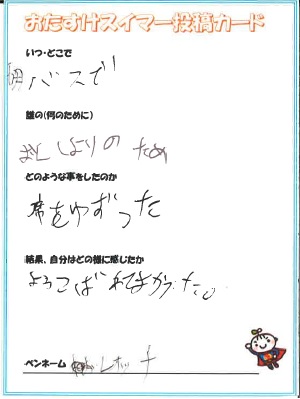 おたすけスイマー投稿カード
いつ・どこで
バスで
誰の(何のために)
おとしよりの ため
どのような事をしたのか
席をゆずった
結果、自分はどの様に感じたか
よろこばれてよかった。
ペンネーム レホッチ